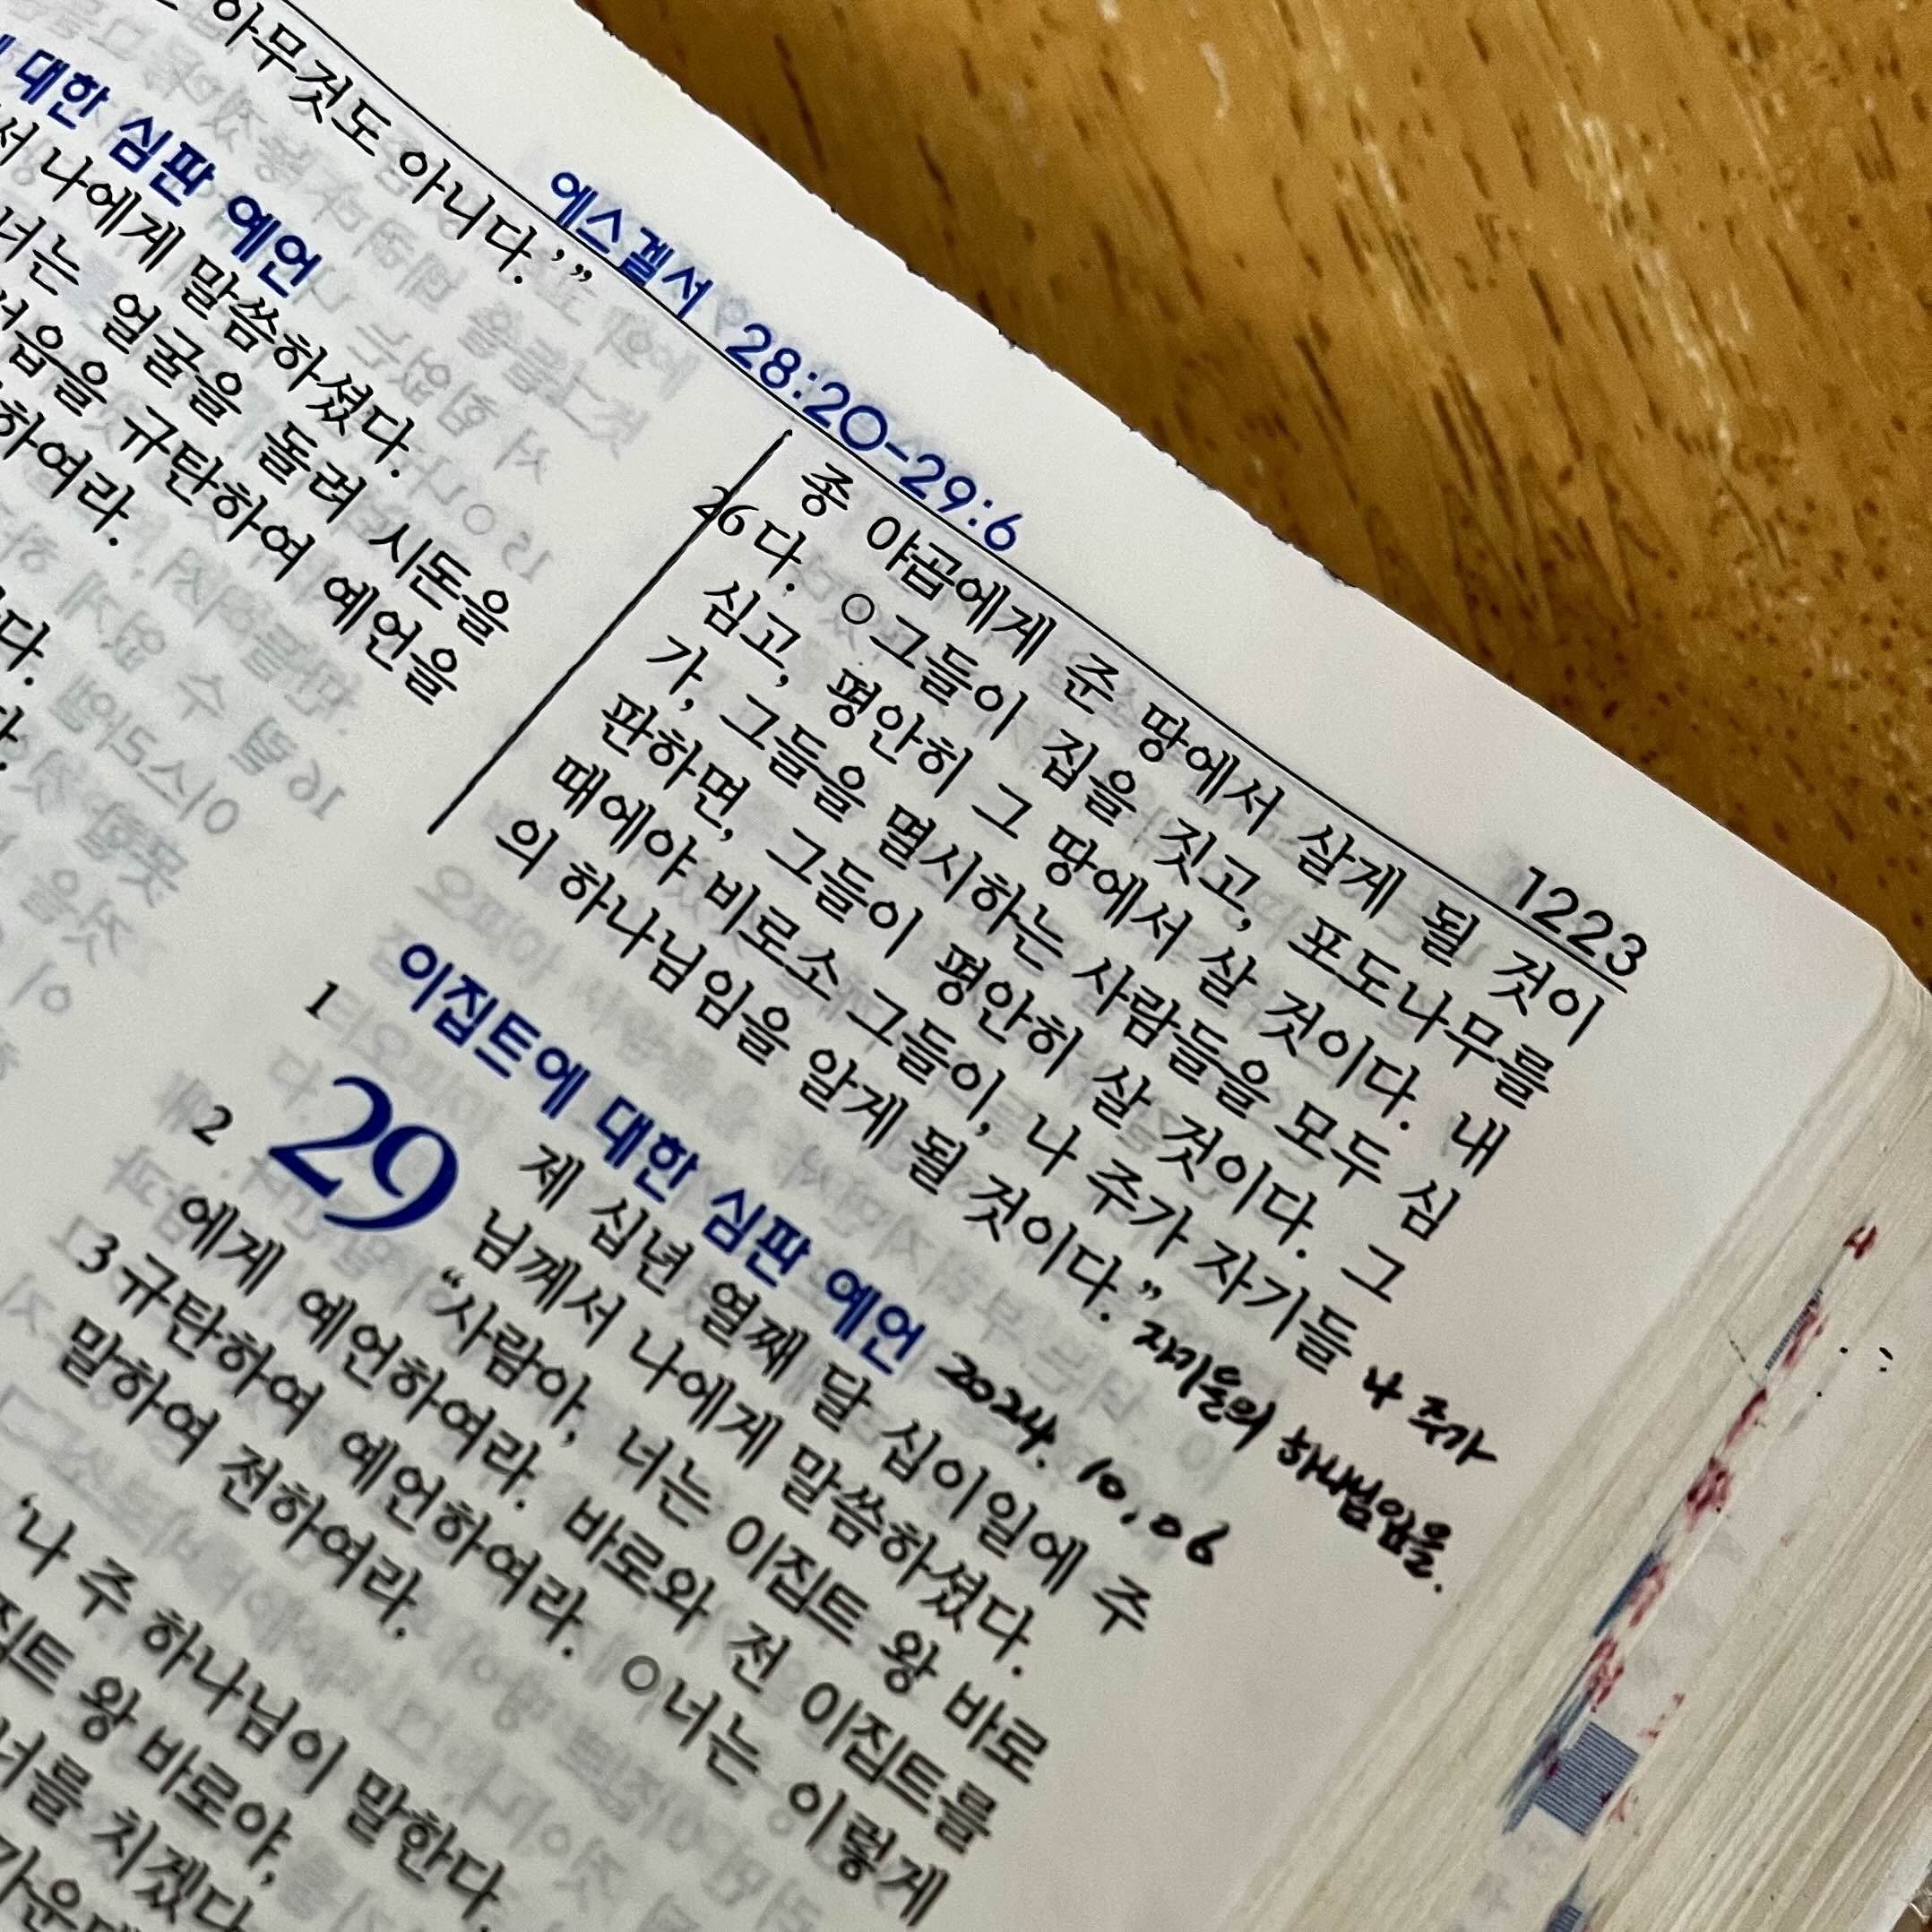 에스겔서 28:20-29:6
1223
아무것도 아니다.’”
대한 심판 예언
나에게 말씀하셨다.
너는 얼굴을 돌려 시돈을
규탄하여 예언을
하여라.
종 야곱에게 준 땅에서 살게 될 것이
26 다. ○그들이 집을 짓고, 포도나무를
심고, 평안히 그 땅에서 살 것이다. 내
가, 그들을 멸시하는 사람들을 모두 심
판하면, 그들이 평안히 살 것이다. 그
때에야 비로소 그들이, 나 주가 자기들
의 하나님임을 알게 될 것이다.”
나 주가
자기들의 하나님임을.
이집트에 대한 심판 예언
2024. 10. 06
1 29 제 십년 열째 달 십이일에 주
님께서 나에게 말씀하셨다.
2 “사람아, 너는 이집트 왕 바로
에게 예언하여라. 바로와 전 이집트를
3 규탄하여 예언하여라. ○너는 이렇게
말하여 전하여라.
‘나 주 하나님이 말한다.
왕 바로야,
너를 치겠다